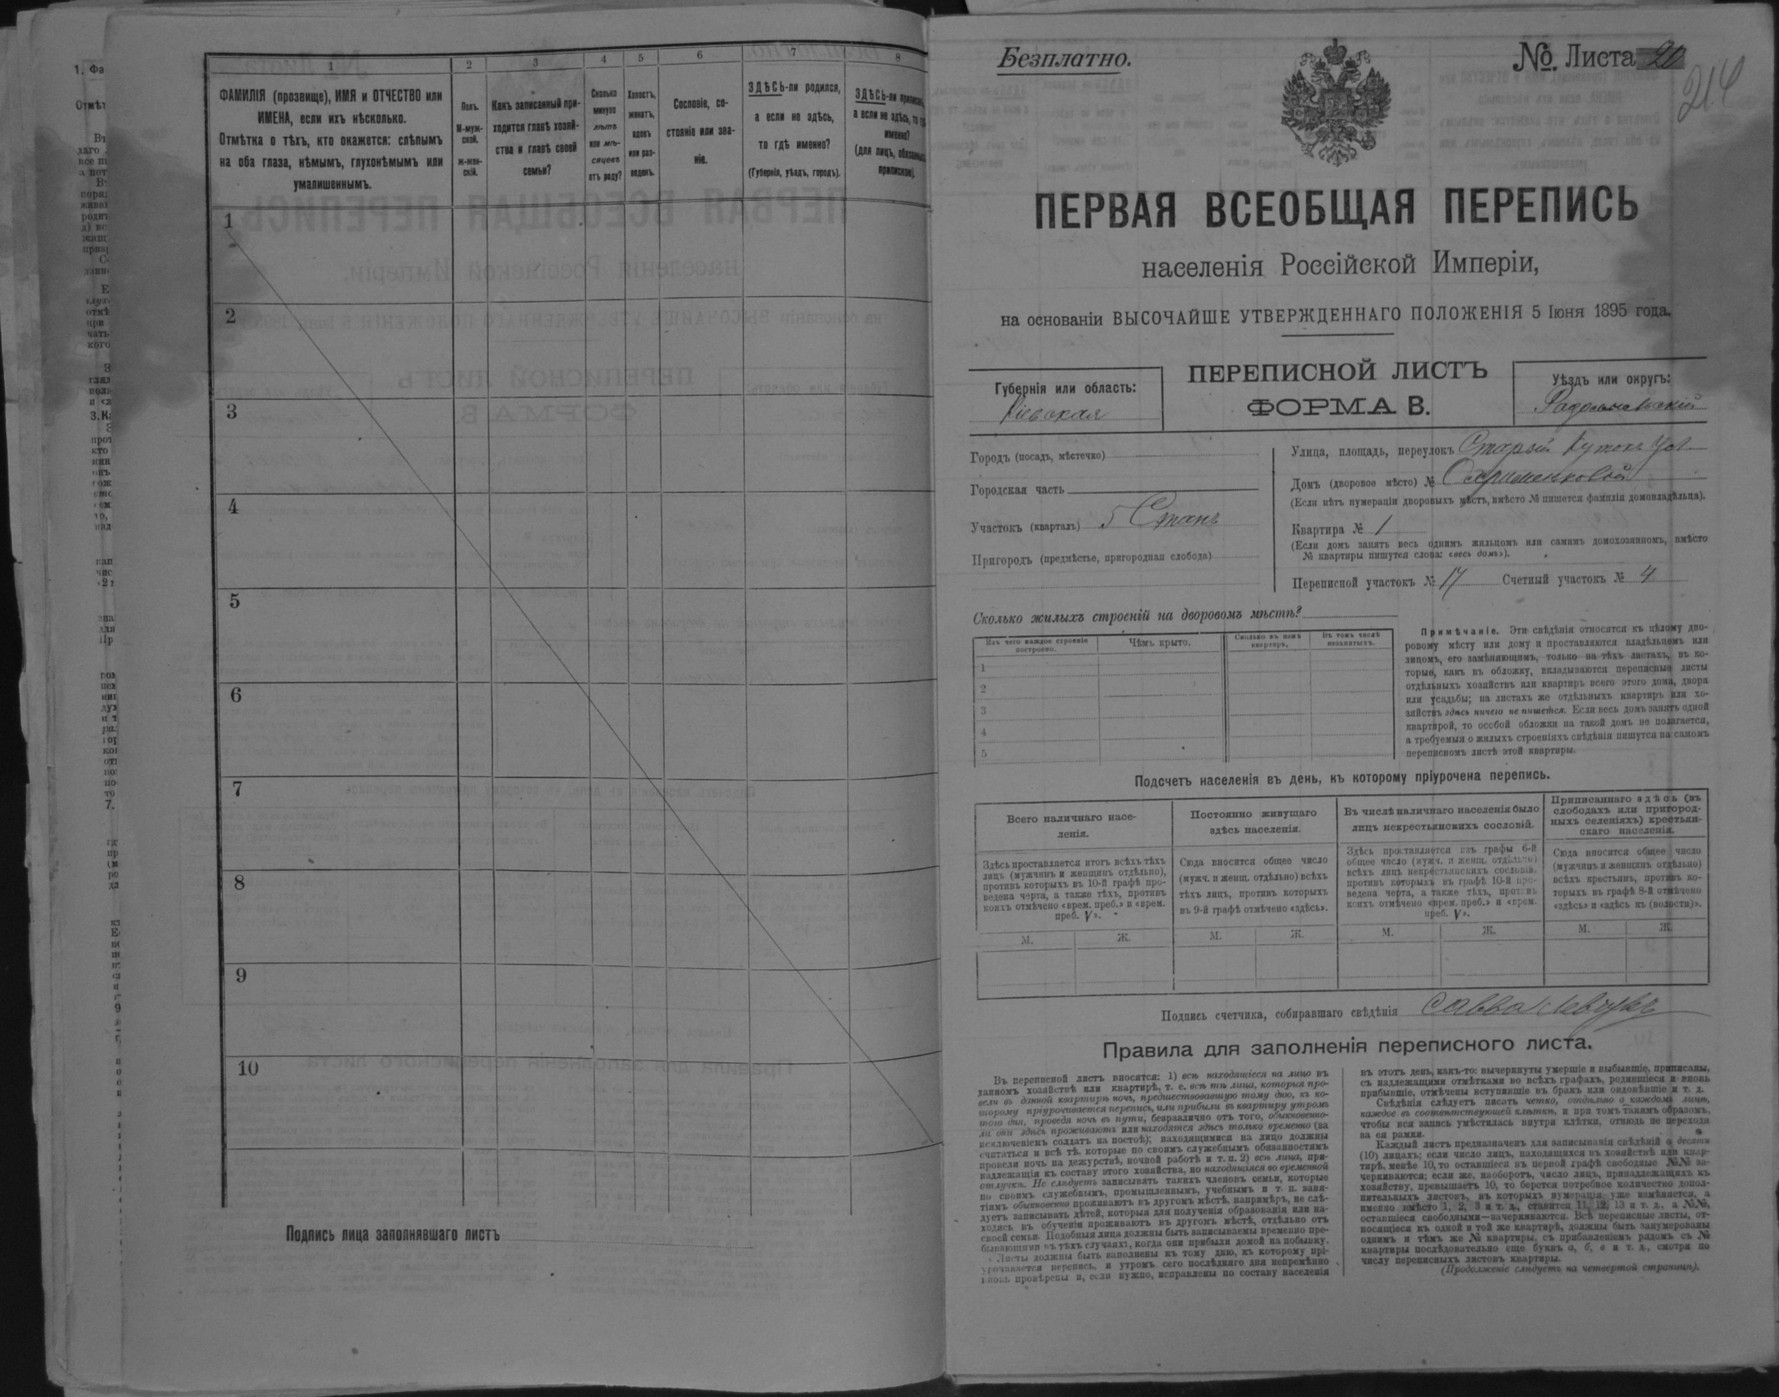 1 2 3 4 5 6 7 8
ФАМИЛІЯ (прозвище), ИМЯ и ОТЧЕСТВО или
ИМЕНА, если ихъ нѣсколько.
Отмѣтка о тѣхъ, кто окажется: слѣпымъ
на оба глаза, нѣмымъ, глухонѣмымъ или
умалишеннымъ.
Полъ.
М-муж-
ской.
Ж-жен-
скій.
Какъ записанный при-
ходится главѣ хозяй-
ства и главѣ своей
семьи?
Сколько
минуло
лѣтъ
или мѣ-
сяцевъ
отъ роду?
Холостъ,
женатъ,
вдовъ
или раз-
веденъ.
Сословіе, со-
стояніе или зва-
ніе.
ЗДѢСЬ-ли родился,
а если не здѣсь,
то гдѣ именно?
(Губернія, уѣздъ, городъ).
ЗДѢСЬ-ли приписанъ,
а если не здѣсь, то гдѣ
именно?
(для лицъ, обязанныхъ
припискою).
1
2
3
4
5
6
7
8
9
10
Подпись лица заполнявшаго листъ
Безплатно.
№ Листа 20
214
ПЕРВАЯ ВСЕОБЩАЯ ПЕРЕПИСЬ
населенія Россійской Имперіи,
на основаніи ВЫСОЧАЙШЕ УТВЕРЖДЕННАГО ПОЛОЖЕНІЯ 5 Іюня 1895 года.
Губернія или область:
Кіевская
ПЕРЕПИСНОЙ ЛИСТЪ
ФОРМА В.
Уѣздъ или округъ:
Радомысльскій
Городъ (посадъ, мѣстечко)
Городская часть
Участокъ (кварталъ) 5 Станъ
Пригородъ (предмѣстье, пригородная слобода)
Улица, площадь, переулокъ Старый
Домъ (дворовое мѣсто) №
(Если нѣтъ нумераціи дворовыхъ мѣстъ, вмѣсто № пишется фамилія домовладѣльца).
Квартира № 1
(Если домъ занятъ весь однимъ жильцомъ или самимъ домохозяиномъ, вмѣсто
№ квартиры пишутся слова: «весь домъ»).
Переписной участокъ № 17 Счетный участокъ № 4
Сколько жилыхъ строеній на дворовомъ мѣстѣ?
Изъ чего каждое строеніе
построено.
Чѣмъ крыто.
Сколько въ немъ
квартиръ.
Въ томъ числѣ
незанятыхъ.
1
2
3
4
5
Примѣчаніе. Эти свѣдѣнія относятся къ цѣлому дво-
ровому мѣсту или дому и проставляются владѣльцемъ или
лицомъ, его замѣняющимъ, только на тѣхъ листахъ, въ ко-
торые, какъ въ обложку, вкладываются переписные листы
отдѣльныхъ хозяйствъ или квартиръ всего этого дома, двора
или усадьбы; на листахъ же отдѣльныхъ квартиръ или хо-
зяйствъ здѣсь ничего не пишется. Если весь домъ занятъ одной
квартирой, то особой обложки на такой домъ не полагается,
а требуемыя о жилыхъ строеніяхъ свѣдѣнія пишутся на самомъ
переписномъ листѣ этой квартиры.
Подсчетъ населенія въ день, къ которому пріурочена перепись.
Всего наличнаго насе-
ленія.
Постоянно живущаго
здѣсь населенія.
Въ числѣ наличнаго населенія было
лицъ некрестьянскихъ сословій.
Приписаннаго здѣсь (въ
слободахъ или пригород-
ныхъ селеніяхъ) крестьян-
скаго населенія.
Здѣсь проставляется итогъ всѣхъ тѣхъ
лицъ (мужчинъ и женщинъ отдѣльно),
противъ которыхъ въ 10-й графѣ про-
ведена черта, а также тѣхъ, противъ
коихъ отмѣчено «врем. преб.» и «врем.
преб. V».
Сюда вносится общее число
(мужч. и женщ. отдѣльно) всѣхъ
тѣхъ лицъ, противъ которыхъ
въ 9-й графѣ отмѣчено «здѣсь».
Здѣсь проставляется изъ графы 6-й
общее число (мужч. и женщ. отдѣльно)
всѣхъ лицъ некрестьянскихъ сословій,
противъ которыхъ въ графѣ 10-й про-
ведена черта, а также тѣхъ, противъ
коихъ отмѣчено «врем. преб.» и «врем.
преб. V».
Сюда вносится общее число
(мужчинъ и женщинъ отдѣльно)
всѣхъ крестьянъ, противъ ко-
торыхъ въ графѣ 8-й отмѣчено
«здѣсь» и «здѣсь къ (волости)».
М. Ж. М. Ж. М. Ж. М. Ж.
Подпись счетчика, собиравшаго свѣдѣнія Савва
Правила для заполненія переписного листа.
Въ переписной листъ вносятся: 1) всѣ находящіеся на лицо въ
данномъ хозяйствѣ или квартирѣ, т. е. всѣ тѣ лица, которыя про-
вели въ данной квартирѣ ночь, предшествовавшую тому дню, къ ко-
торому пріурочивается перепись, или прибыли въ квартиру утромъ
того дня, проведя ночь въ пути, безразлично отъ того, обыкновенно-
ли они здѣсь проживаютъ или находятся здѣсь только временно (за
исключеніемъ солдатъ на постоѣ); находящимися на лицо должны
считаться и всѣ тѣ, которые по своимъ служебнымъ обязанностямъ
провели ночь на дежурствѣ, ночной работѣ и т. п. 2) всѣ лица, при-
надлежащія къ составу этого хозяйства, но находящіяся во временной
отлучкѣ. Не слѣдуетъ записывать такихъ членовъ семьи, которые
по своимъ служебнымъ, промышленнымъ, учебнымъ и т. п. заня-
тіямъ обыкновенно проживаютъ въ другомъ мѣстѣ, напримѣръ, не слѣ-
дуетъ записывать дѣтей, которыя для полученія образованія или на-
ходясь въ обученіи проживаютъ въ другомъ мѣстѣ, отдѣльно отъ
своей семьи. Подобныя лица должны быть записываемы временно пре-
бывающими въ тѣхъ случаяхъ, когда они прибыли домой на побывку.
Листы должны быть заполнены къ тому дню, къ которому прі-
урочивается перепись, и утромъ сего послѣдняго дня непремѣнно
вновь провѣрены и, если нужно, исправлены по составу населенія
въ этотъ день, какъ-то: вычеркнуты умершіе и выбывшіе, приписаны,
съ надлежащими отмѣтками во всѣхъ графахъ, родившіеся и вновь
прибывшіе, отмѣчены вступившіе въ бракъ или овдовѣвшіе и т. д.
Свѣдѣнія слѣдуетъ писать четко, отдѣльно о каждомъ лицѣ,
каждое въ соотвѣтствующей клѣткѣ, и при томъ такимъ образомъ,
чтобы вся запись умѣстилась внутри клѣтки, отнюдь не переходя
за ея рамки.
Каждый листъ предназначенъ для записыванія свѣдѣній о десяти
(10) лицахъ; если число лицъ, находящихся въ хозяйствѣ или квар-
тирѣ, менѣе 10, то оставшіеся въ первой графѣ свободные №№ за-
черкиваются; если же, наоборотъ, число лицъ, принадлежащихъ къ
хозяйству, превышаетъ 10, то берется потребное количество допол-
нительныхъ листовъ, въ которыхъ нумерація уже измѣняется, а
именно вмѣсто 1, 2, 3 и т. д. ставится 11, 12, 13 и т. д., а №№,
оставшіеся свободными—зачеркиваются. Всѣ переписные листы, от-
носящіеся къ одной и той же квартирѣ, должны быть занумерованы
однимъ и тѣмъ же № квартиры, съ прибавленіемъ рядомъ съ №
квартиры послѣдовательно еще буквъ а, б, в и т. д., смотря по
числу переписныхъ листовъ квартиры.
(Продолженіе слѣдуетъ на четвертой страницѣ).